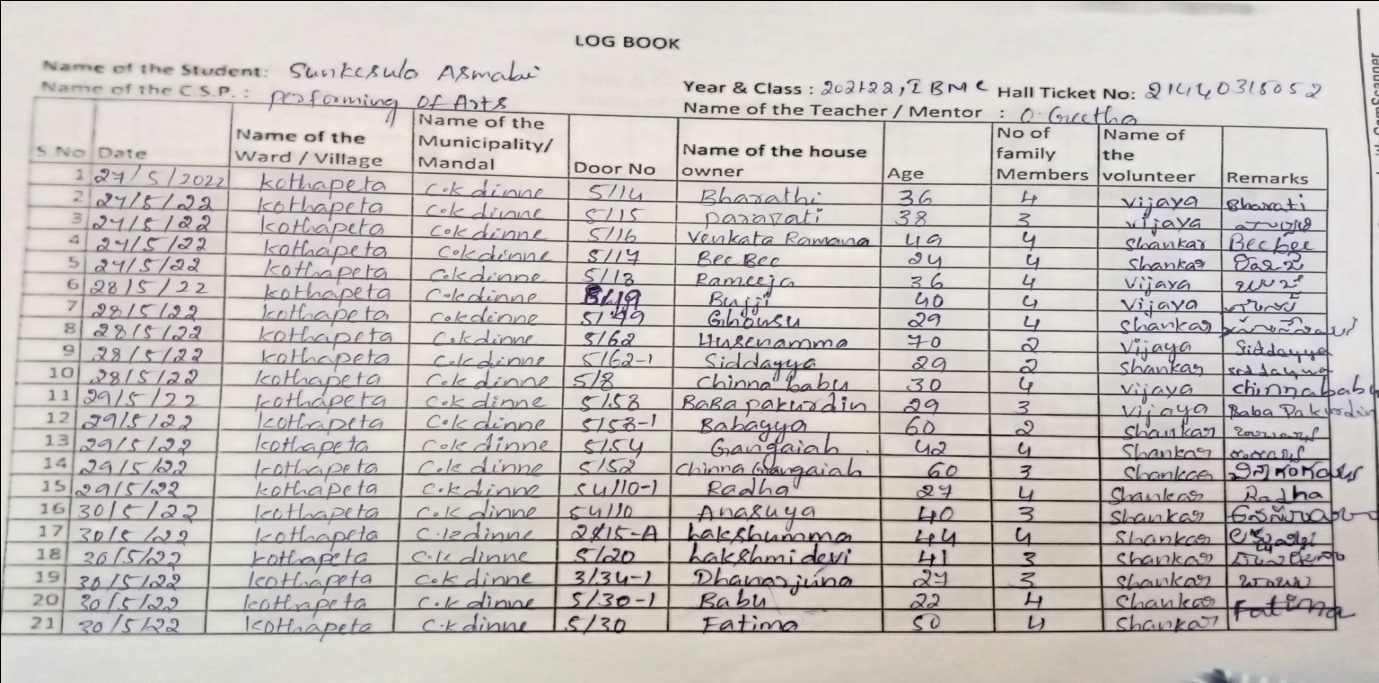 LOG BOOK
Name of the Student: Sunkesula Asmabi
Year & Class : 2021-22, I BMC Hall Ticket No: 21440315052
Name of the C S.P. : performing of Arts
Name of the Teacher / Mentor : O. Geetha
S No Date Name of the Ward / Village Name of the Municipality/ Mandal Door No Name of the house owner Age No of family Members Name of the volunteer Remarks
1 27/5/2022 kothapeta C.k dinne 5/14 Bharathi 36 4 Vijaya Bharati
2 27/5/22 kothapeta C.k dinne 5/15 Daravati 38 3 Vijaya
3 27/5/22 kothapeta C.k dinne 5/16 Venkata Ramana 49 4 Shankar Bee bee
4 27/5/22 kothapeta C.k dinne 5/17 Bee Bee 24 4 Shankar
5 27/5/22 kothapeta C.k dinne 5/18 Rameeja 36 4 Vijaya
6 28/5/22 kothapeta C.k dinne 5/19 Bujji 40 4 Vijaya
7 28/5/22 kothapeta C.k dinne Ghousu 29 4 Shankar
8 28/5/22 kothapeta C.k dinne 5/62 Husenamma 70 2 Vijaya Siddayya
9 28/5/22 kothapeta C.k dinne 5/62-1 Siddayya 29 2 Shankar
10 28/5/22 kothapeta C.k dinne 5/8 Chinna babu 30 4 Vijaya chinnababu
11 29/5/22 kothapeta C.k dinne 5/58 BaBa pakurdin 29 3 Vijaya Baba Pakurdin
12 29/5/22 kothapeta C.k dinne 5/58-1 Babayya 60 2 Shankar
13 29/5/22 kothapeta C.k dinne 5/54 Gangaiah 42 4 Shankar
14 29/5/22 kothapeta C.k dinne 5/52 Chinna Gangaiah 60 3 Shankar
15 29/5/22 kothapeta C.k dinne 54/10-1 Radha 27 4 Shankar Radha
16 30/5/22 kothapeta C.k dinne 54/10 Anasuya 40 3 Shankar
17 30/5/22 kothapeta C.k dinne 2815-A Lakshumma 44 4 Shankar
18 30/5/22 kothapeta C.k dinne 5/20 Lakshmi devi 41 3 Shankar
19 30/5/22 kothapeta C.k dinne 3/34-1 Dhanarjuna 27 3 Shankar
20 30/5/22 kothapeta C.k dinne 5/30-1 Babu 22 4 Shankar Fatima
21 30/5/22 kothapeta C.k dinne 5/30 Fatima 50 4 Shankar